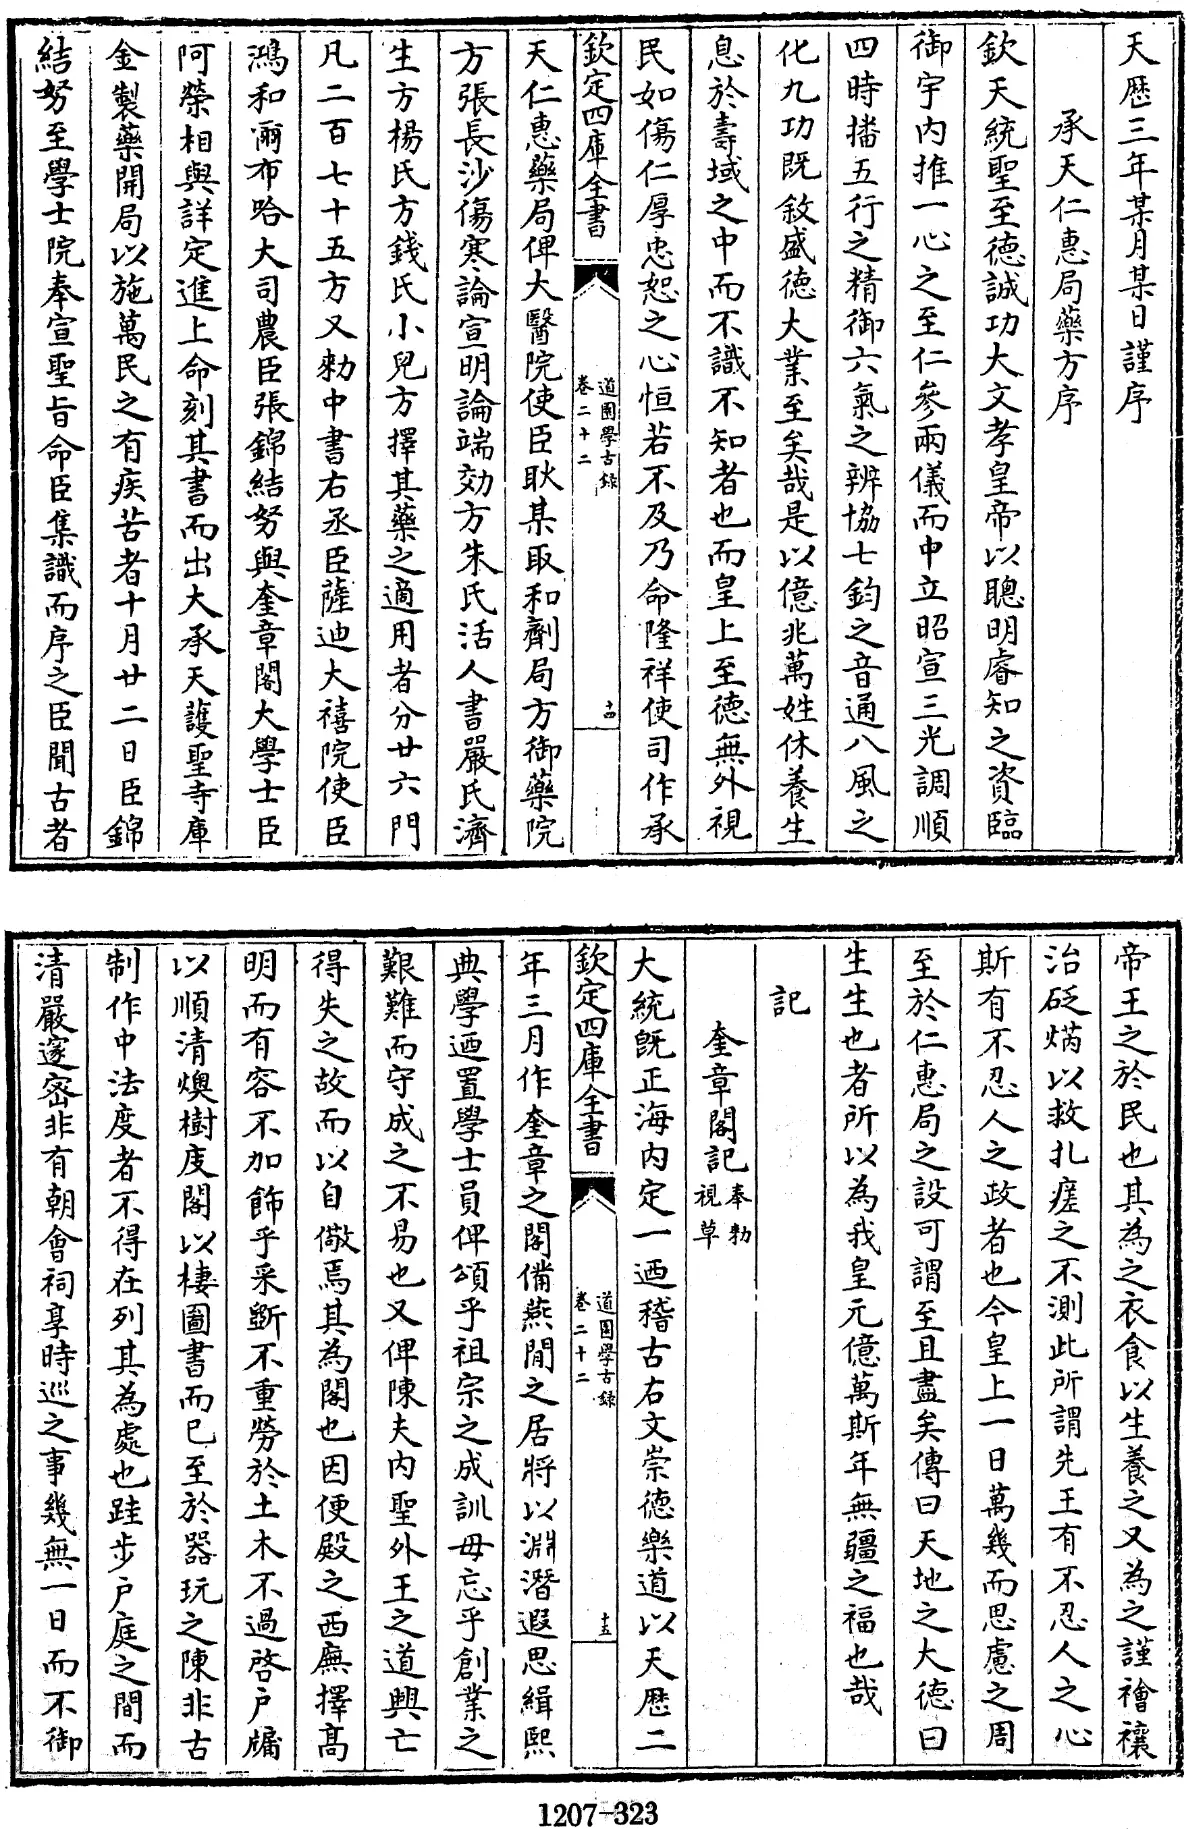 天歷三年某月某日謹序
承天仁惠局藥方序
欽天統聖至德誠功大文孝皇帝以聰明睿知之資臨
御宇内推一心之至仁參兩儀而中立昭宣三光調順
四時播五行之精御六氣之辨協七鈞之音通八風之
化九功既敘盛德大業至矣哉是以億兆萬姓休養生
息於壽域之中而不識不知者也而皇上至德無外視
民如傷仁厚忠恕之心恒若不及乃命隆祥使司作承
欽定四庫全書
道園學古錄
卷二十二
十四
天仁惠藥局俾大醫院使臣耿某取和劑局方御藥院
方張長沙傷寒論宣明論端効方朱氏活人書嚴氏濟
生方楊氏方錢氏小兒方擇其藥之適用者分廿六門
凡二百七十五方又勑中書右丞臣薩迪大禧院使臣
鴻和爾布哈大司農臣張錦結努與奎章閣大學士臣
阿榮相與詳定進上命刻其書而出大承天護聖寺庫
金製藥開局以施萬民之有疾苦者十月廿二日臣錦
結努至學士院奉宣聖旨命臣集識而序之臣聞古者
帝王之於民也其為之衣食以生養之又為之謹禬禳
治砭焫以救扎瘥之不測此所謂先王有不忍人之心
斯有不忍人之政者也今皇上一日萬幾而思慮之周
至於仁惠局之設可謂至且盡矣傳曰天地之大德曰
生生也者所以為我皇元億萬斯年無疆之福也哉
記
奎章閣記奉勑視草
大統既正海内定一迺稽古右文崇德樂道以天歷二
欽定四庫全書
道園學古錄
卷二十二
十五
年三月作奎章之閣備燕閒之居將以淵潛遐思緝熙
典學迺置學士員俾頌乎祖宗之成訓毋忘乎創業之
艱難而守成之不易也又俾陳夫内聖外王之道興亡
得失之故而以自儆焉其為閣也因便殿之西廡擇高
明而有容不加飾乎采斵不重勞於土木不過啓户牖
以順清燠樹庋閣以棲圖書而已至於器玩之陳非古
制作中法度者不得在列其為處也跬步户庭之間而
清嚴邃密非有朝會祠享時巡之事幾無一日而不御
1207-323